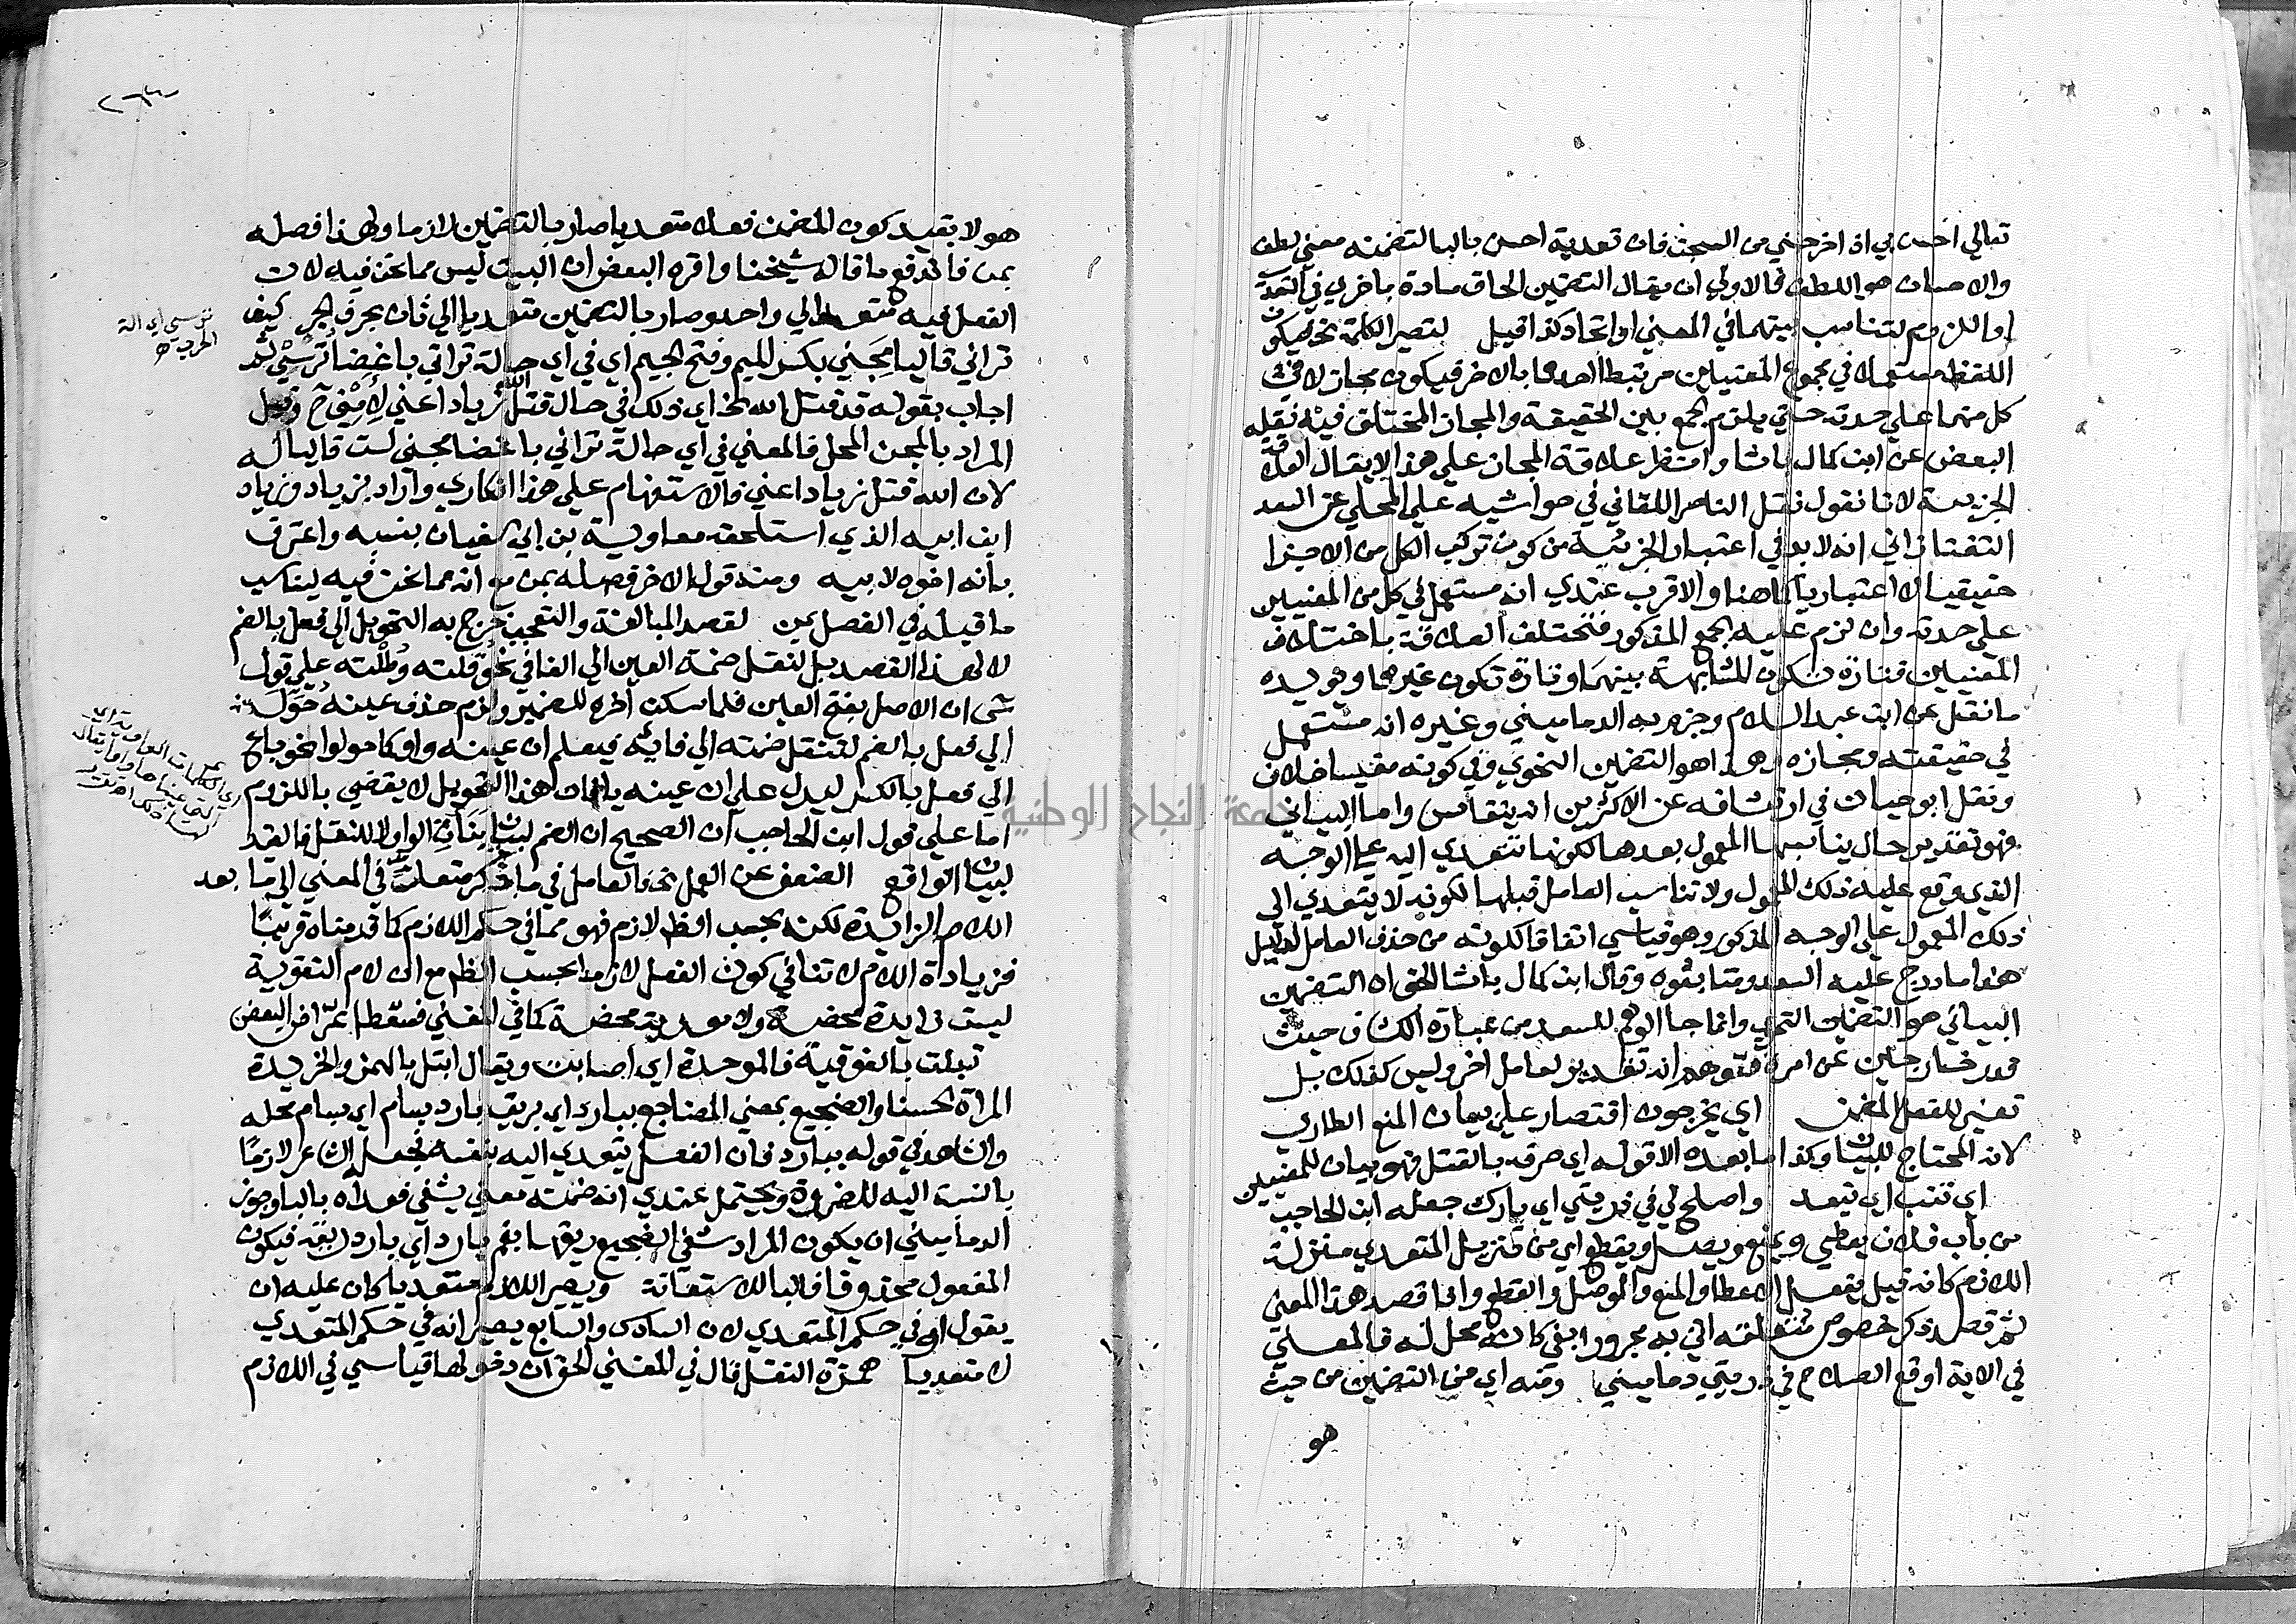 تعالي احسن بي اذ اخرجني من السجن فان تعدية احسن بالبا لتضمنه معني لطف
والاحسان هو اللطف فالاولي ان يقال التضمين الحاق مادة باخري في التعدية
او اللزوم لتناسب بينهما في المعني او اتحاد كذا قيل لتصير الكلمة الخ فيكون
اللفظ مستعملا في مجموع المعنيين مرتبطا احدهما بالاخر فيكون مجازا لا في
كل منهما علي حدته حتي يلزم الجمع بين الحقيقة والمجاز المختلف فيه نقله
البعض عن ابن كمال باشا وانتظر علاقة المجاز علي هذا لا يقال العلاقة
الجزيية لانا نقول نقل الناصر اللقاني في حواشيه علي المحلي عن السعد
التفتازاني انه لابد في اعتبار الجزئية من كون تركب الكل من الاجزا
حقيقيا لا اعتباريا كما هنا والاقرب عندي انه مستعمل في كل من المعنيين
علي حدته وان لزم عليه الجمع المذكور فتختلف العلاقة باختلاف
المعنيين فتارة تكون للمشابهة بينهما وتارة تكون غيرها ويويده
ما نقل عن ابن عبد السلام وجزم به الدماميني وغيره انه مستعمل
في حقيقته ومجازه وهذا هو التضمين النحوي وفي كونه مقيسا خلاف
ونقل ابو حيان في ارتشافه عن الاكثرين انه ينقاس واما البياني
فهو تقدير حال يناسبها المعمول بعدها لكونها تتعدي اليه علي الوجه
الذي وقع عليه ذلك المعمول ولا تناسب العامل قبلها لكونه لا يتعدي الي
ذلك المعمول علي الوجه المذكور وهو قياسي اتفاقا لكونه من حذف العامل لدليل
هذا ما درج عليه السعد ومتابعوه وقال ابن كمال باشا الحق ان التضمين
البياني هو التضمين النحوي وانما جا الوهم للسعد من عبارة الكشاف حيث
قدر خارجين عن امره فتوهم انه تقدير لعامل اخر وليس كذلك بل
تفسير للفعل المضمن اي يخرجون اقتصار علي بيان المنع الطاري
لانه المحتاج للبيان وكذا ما بعده الا قوله اي صرفه بالقتل فهو بيان للمعنيين
اي تنب اي تبعد واصلح لي في ذريتي اي بارك جعله ابن الحاجب
من باب فلان يعطي ويمنع ويصل ويقطع اي من تنزيل المتعدي منزلة
اللازم كانه قيل يفعل الاعطا والمنع والوصل والقطع واذا قصد هذا المعني
ثم قصد ذكر خصوص متعلقه اتي به مجرورا بفي كانه محل له فالمعني
في الاية اوقع الصلاح في ذريتي دماميني ومنه اي من التضمين من حيث
هو
هو لا بقيد كون المضمن فعلا متعديا صار بالتضمين لازما ولهذا فصله
بمن فاندفع ما قاله شيخنا واقره البعض ان البيت ليس مما نحن فيه لان
الفعل فيه متعد الي واحد وصار بالتضمين متعديا الي ثان بحرف الجر كيف
تراني قاليا مجني بكسر الميم وفتح الجيم اي في اي حالة تراني باغضا ترسي ثم
اجاب بقوله قد قتل الله الخ اي ذلك في حال قتل الله زيادا عني لامني ح وقيل
المراد بالمجن المحل فالمعني في اي حالة تراني باغضا مجني لست قاليا له
لان الله قتل زيادا عني فالاستفهام علي هذا انكاري واراد بزياد زياد
ابن ابيه الذي استلحقه معاوية بن ابي سفيان بنسبه واعترف
بانه اخوه لابيه ومنه قول الاخر فصله بمن مع انه مما نحن فيه ليناسب
ما قبله في الفصل بمن لقصد المبالغة والتعجب خرج به التحويل الي فعل بالضم
لا لهذا القصد بل لنقل ضمة العين الي الفا في نحو قلته وطلته علي قول
ان الاصل بفتح العين فلما سكن اخره للضمير ولزم حذف عينه حول
الي فعل بالضم لتنتقل ضمته الي فائه فيعلم ان عينه واو كما حولوا نحو باع
الي فعل بالكسر ليدل علي ان عينه يا فان هذا التحويل لا يقضي باللزوم
اما علي قول ابن الحاجب ان الصحيح ان الضم لبيان بنات الواو لا للنقل فالقيد
لبيان الواقع الضعف عن العمل الخ فالعامل في ما ذكر متعد في المعني الي ما بعد
اللام الزايدة لكنه بحسب اللفظ لازم فهو مما في حكم اللازم كما قدمناه قريبا
فزيادة اللام لا تنافي كون الفعل لازما بحسب اللفظ مع ان لام التقوية
ليست زايدة محضة ولا معدية محضة كما في المغني فسقط اعتراض البعض
تبلت بالفوقية فالموحدة اي اصابت ويقال ابتل بالهمز والخريدة
المراة الحسنا والضجيع بمعني المضاجع ببارد اي بريق بارد بسام اي بسام محله
والشاهد في قوله ببارد فان الفعل يتعدي اليه بنفسه فجعل الشاعر لازما
بالنسبة اليه للضرورة ويحتمل عندي انه ضمنه معني يشفي فعداه بالبا وجوز
الدماميني ان يكون المراد تشفي الضجيع ريقها بفم بارد اي بارد ريقه فيكون
المفعول محذوفا فالبا للاستعانة ويصير اللازم متعديا كان عليه ان
يقول او في حكم المتعدي لان السادس والسابع يصير انه في حكم المتعدي
لا متعديا همزة النقل قال في المغني الحق ان دخولها قياسي في اللازم
ترسي اي الة
الحرب اه